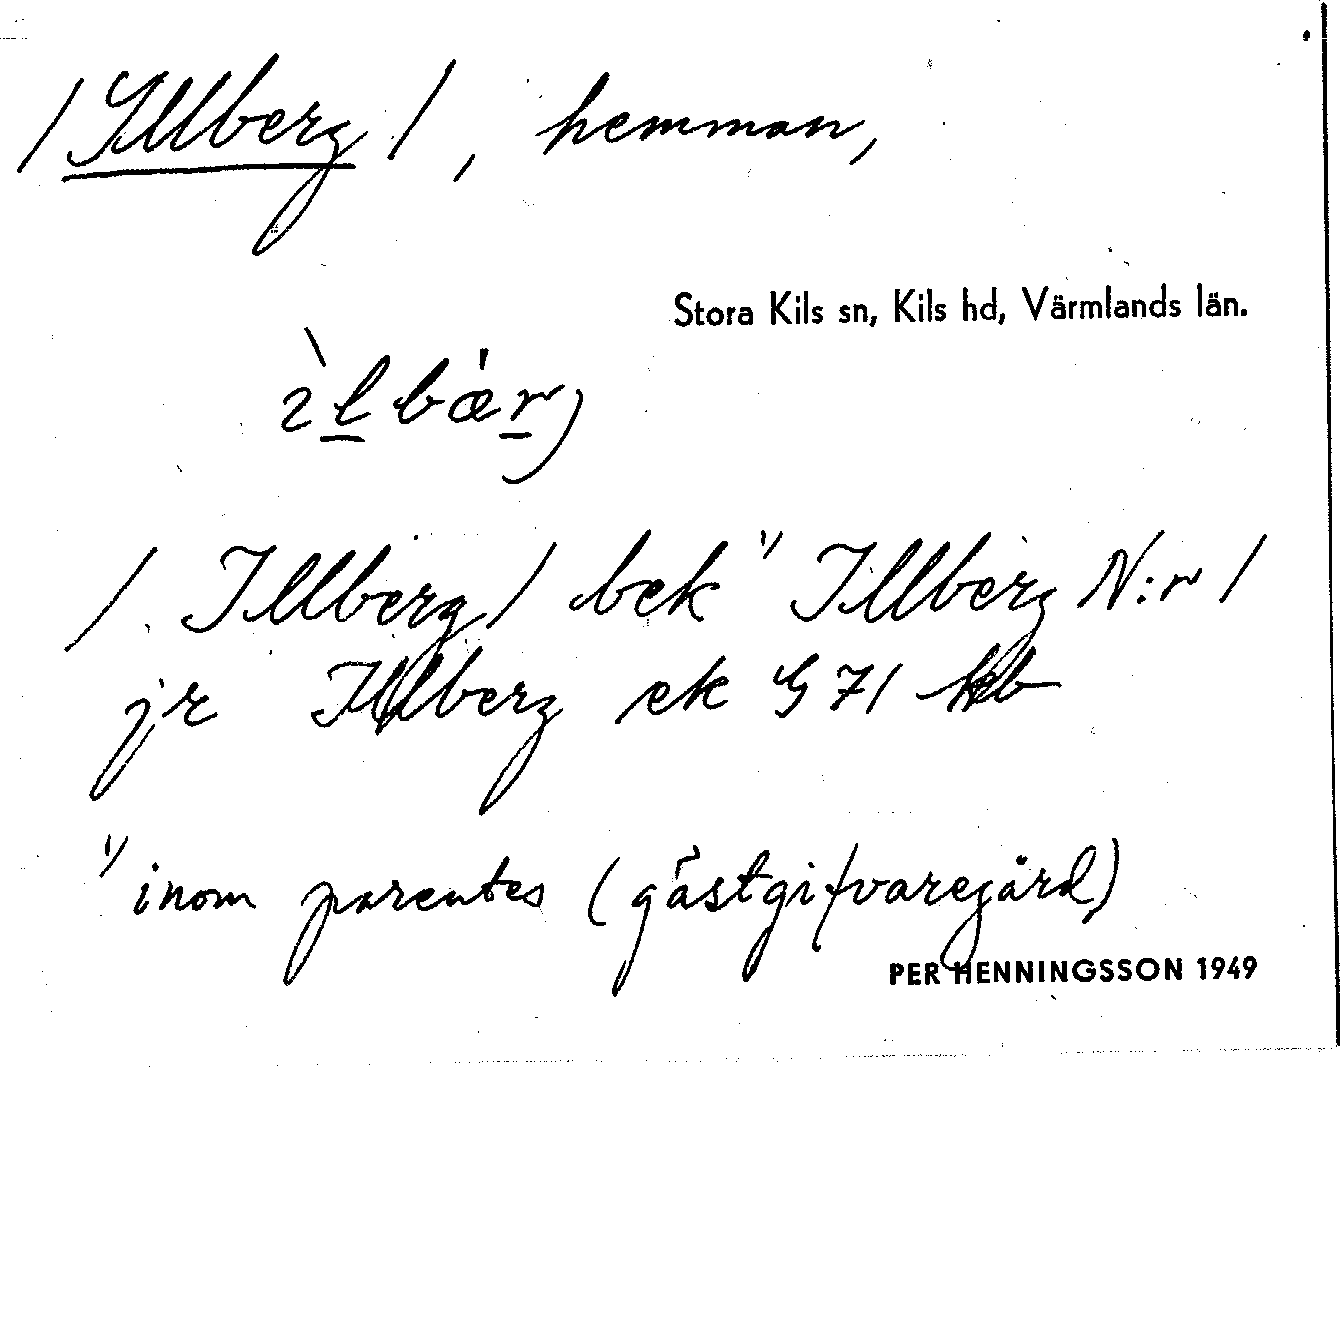 /Illberg/, hemman,
Stora Kils sn, Kils hd, Värmlands län.
ìlbær
/Illberg/ bek ¹/ Illberg N:r 1
jr Illberg ek G 71
¹/ inom parentes (gästgifvaregård)
PER HENNINGSSON 1949